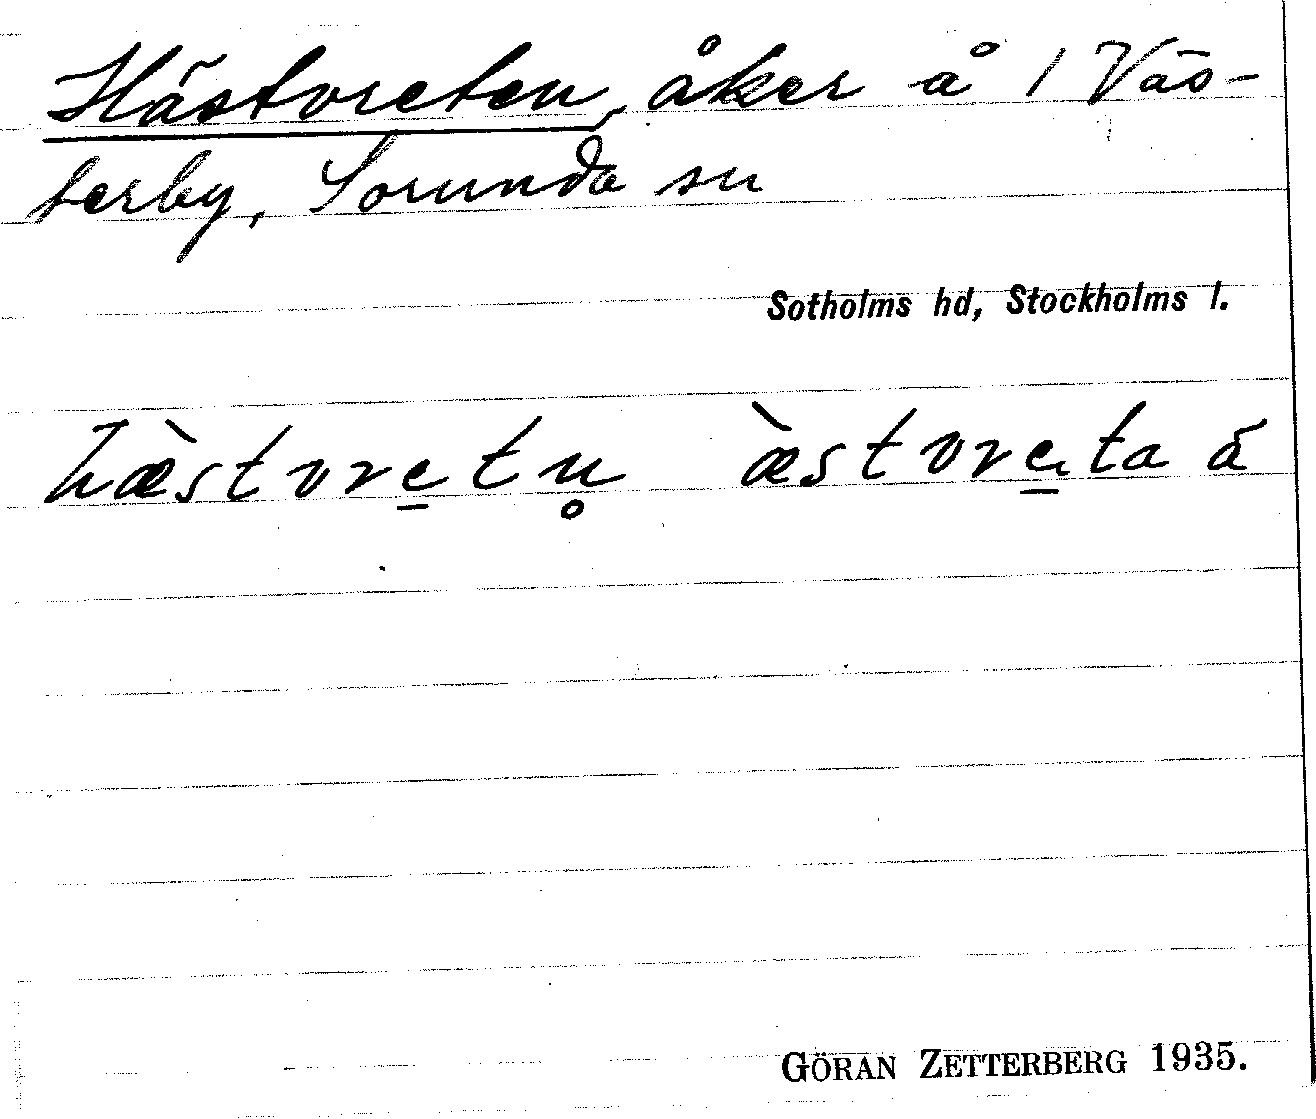 Hästvreten, åker å 1 Väs-
terby, Sorunda sn
Sotholms hd, Stockholms l.
hæ̀stvre̱tn̥ æ̀stvre̱ta å
GÖRAN ZETTERBERG 1935.